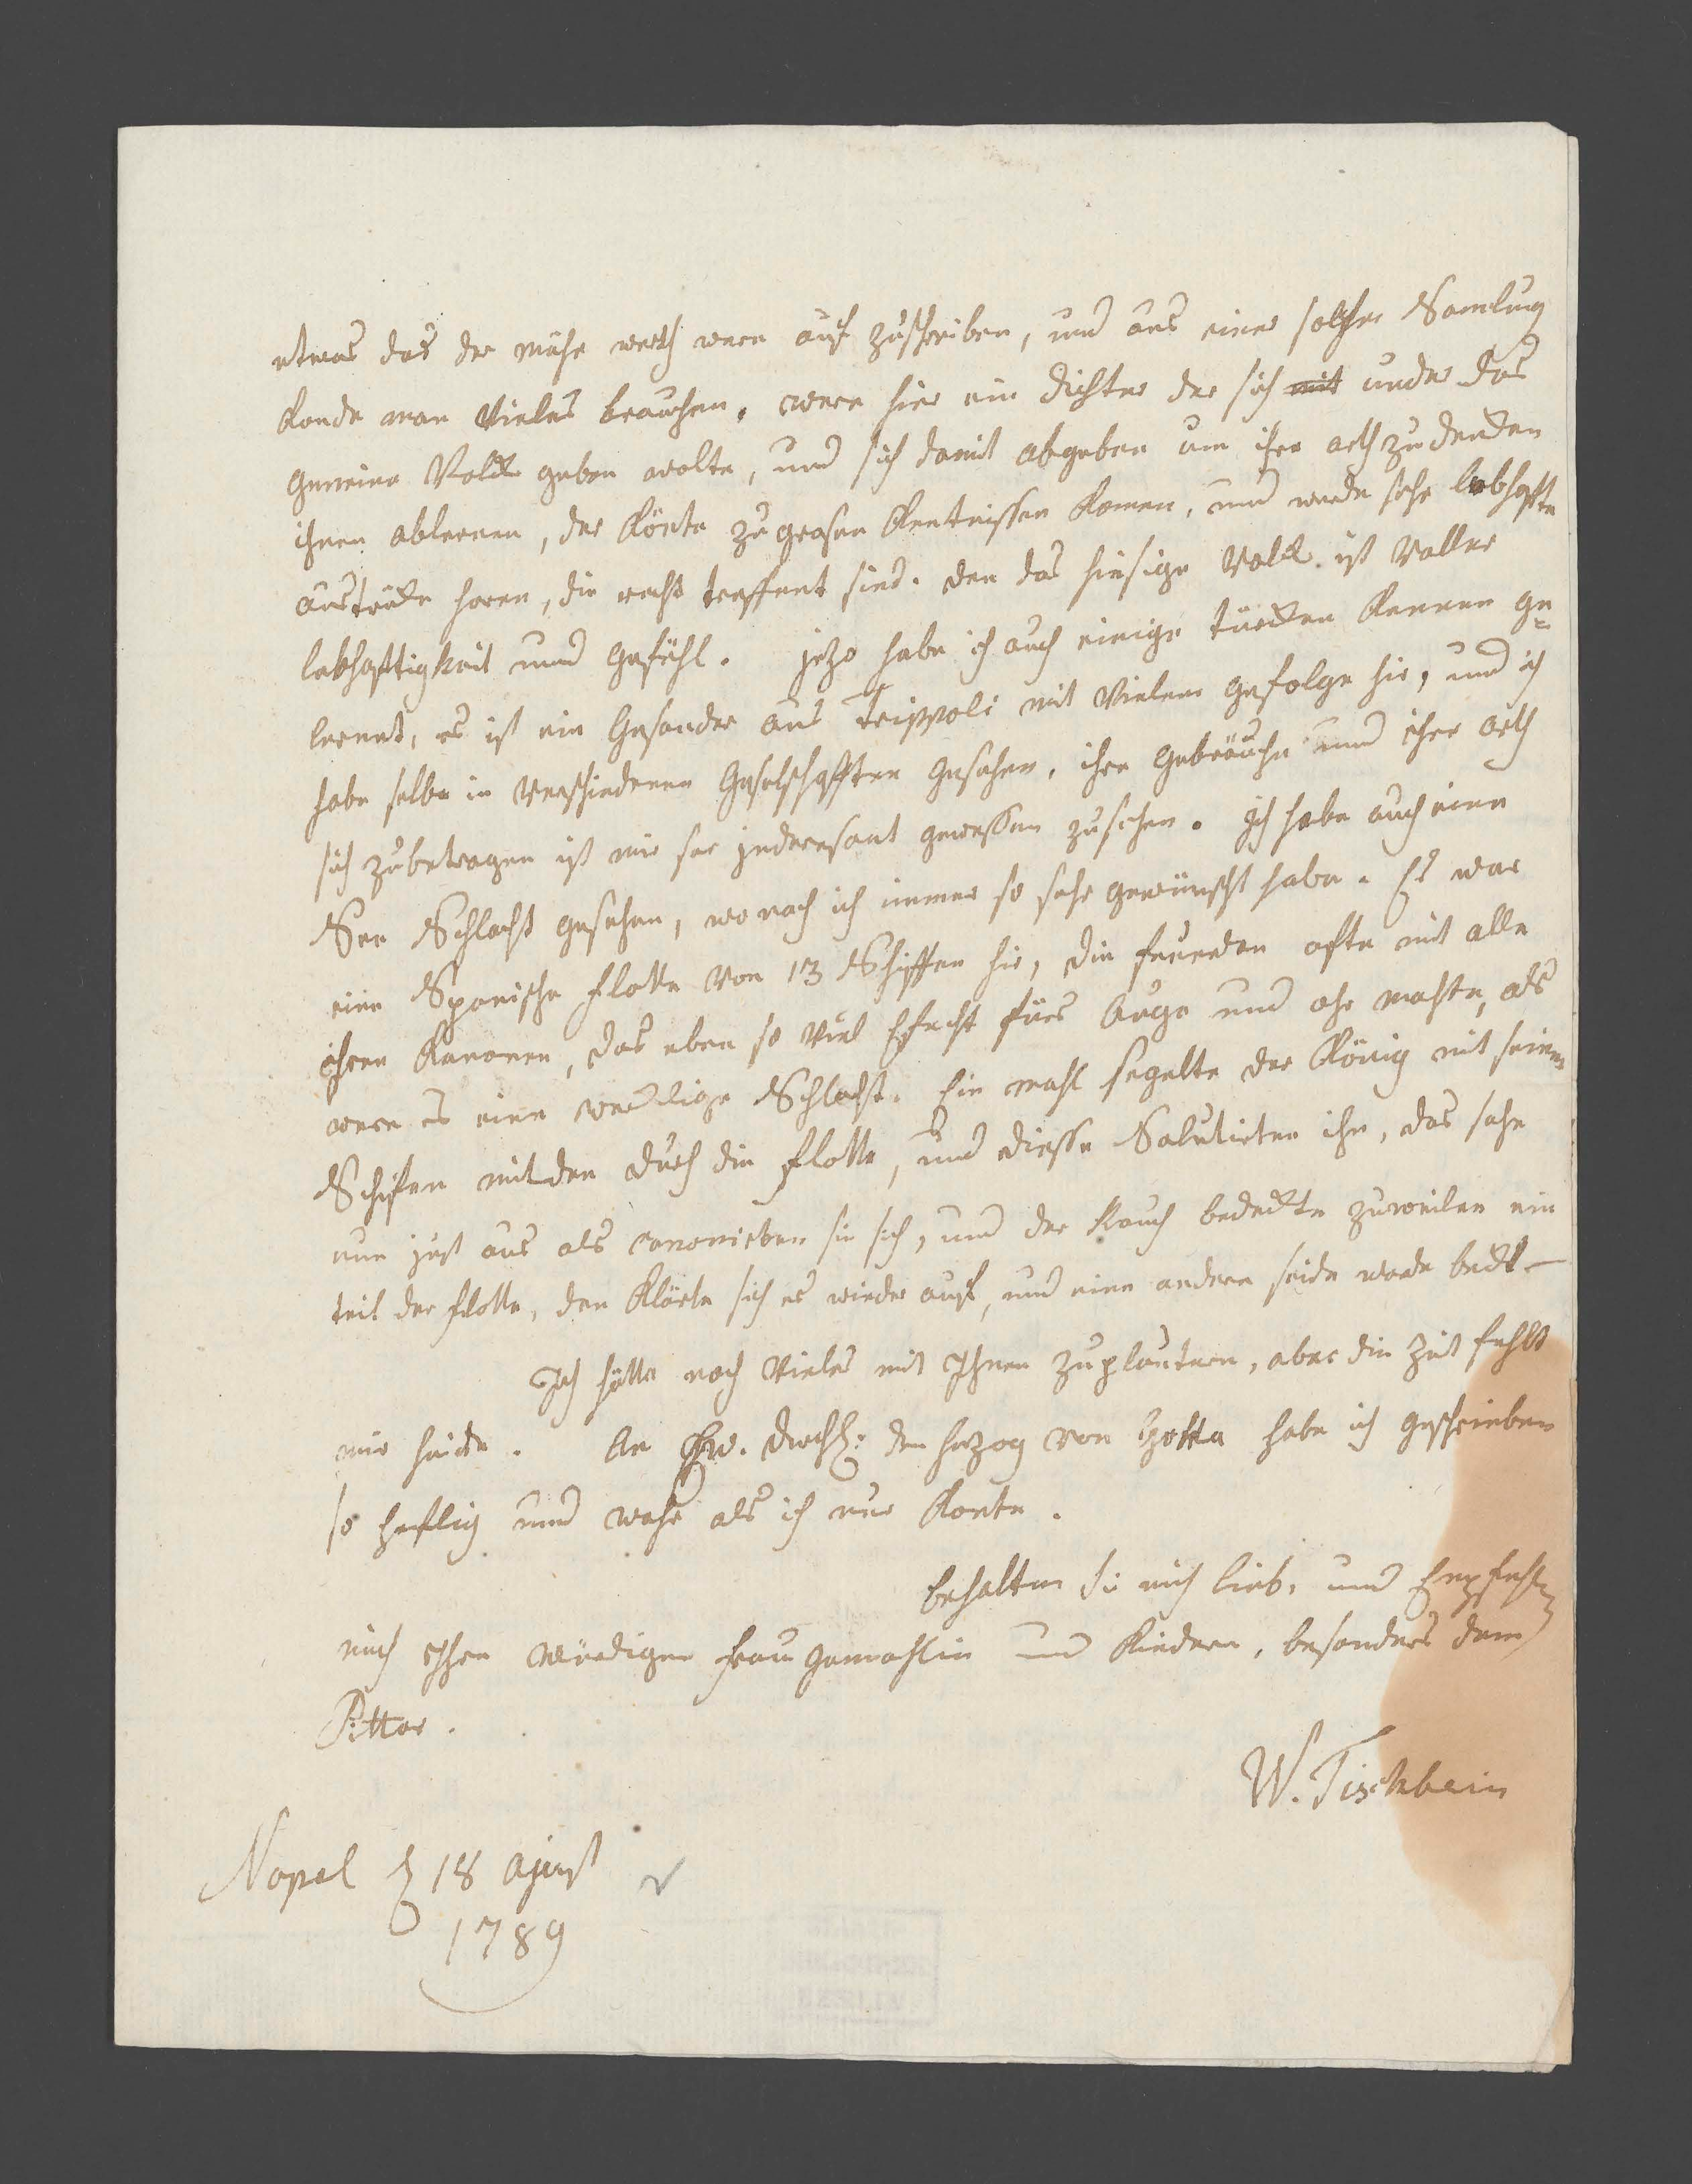 etwas das der mühe werth were auf zuschreiben, und aus einer solchen Samlung
konde man Vieles brauchen. were hier ein dichter der sich mit under das
gemeine Volck geben wolte, und sich damit abgeben um ihre arth zu dencken
ihnen ablernen, der könte zu grosen kentnissen komen, und wurde sehr lebhafte
austrücke horen, die recht treffent sind. den das hiesige Volck ist Voller
lebhaftigkeit und gefühl. jezo habe ich auch einige türcken kennen ge=
lernnt, es ist ein Gesander aus Trippoli mit Vielem gefolge hir, und ich
habe selbe in Verschiedenen Geselschafften gesehen, ihre gebräuche und ihre arth
sich zubetragen ist mir ser inderesant gewessen zusehen. Ich habe auch eine
See Schlacht gesehen, wo nach ich immer so sehr gewünscht habe. Es war
eine Spanische flotte Von 13 Schiffen hir, die feuerden ofte mit alle
ihren Kanonen, das eben so Viel Efecht fürs Auge und ohr machte, als
were es eine würcklige Schlacht. Ein mahl segelte der König mit seinen
Schifen mitden durch die flotte, und diesse Salutirten ihn, das sahe
nun just aus als canonirten sie sich, und der Rauch bedeckte zuweilen ein
teil der flotte, den klärte sich es wieder auf, und eine andere seide warde bedckt—
Ich hätte noch Vieles mit Ihnen zuplautern, aber die Zeit fehlt
mir heide. An Ew. Durchl: den herzog von Gotta habe ich geschrieben
so heflig und wahr als ich nur konte.
behalten Sie mich lieb, und Empfehlen
mich Ihrer Würdigen frau gemahlin und Kindern, besonders dem
Pittor.
W. Tischbein
Napel d 18 Agust
1789